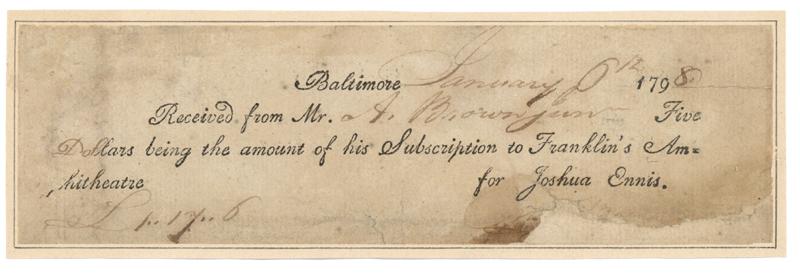 Baltimore January 6th 1798
Received from Mr. A. Brown jun Five
Dollars being the amount of his Subscription to Franklin's Am=
phitheatre for Joshua Ennis.
£ 1.. 17.. 6